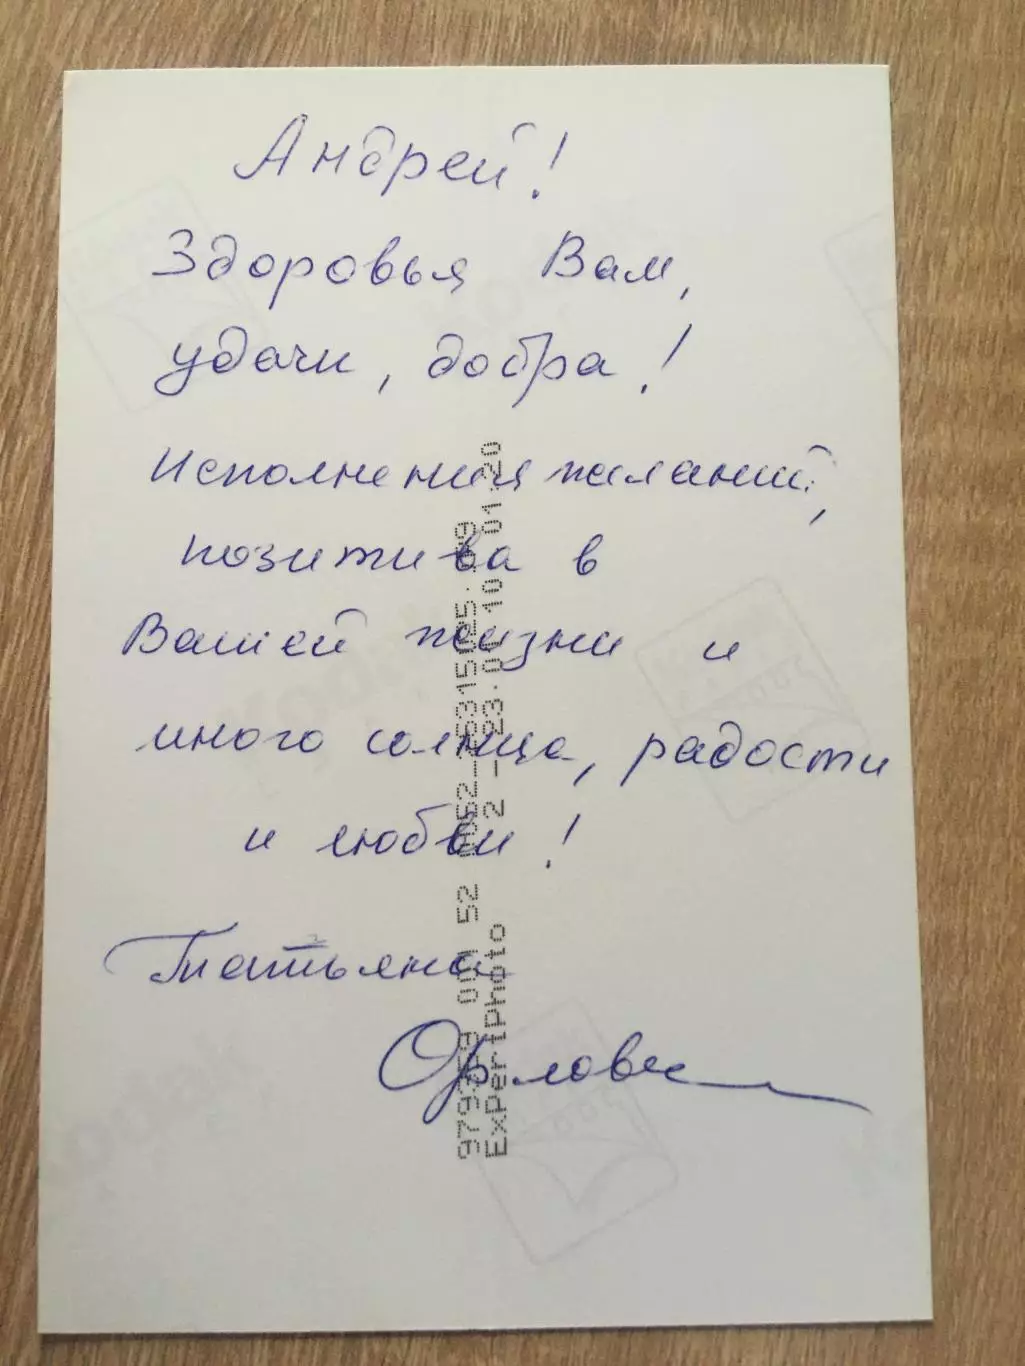 Андрей!
Здоровья Вам,
удачи, добра!
Исполнения желаний,
позитива в
Вашей жизни и
много солнца, радости
и любви!
Татьяна
Орлова
ExpertPhoto